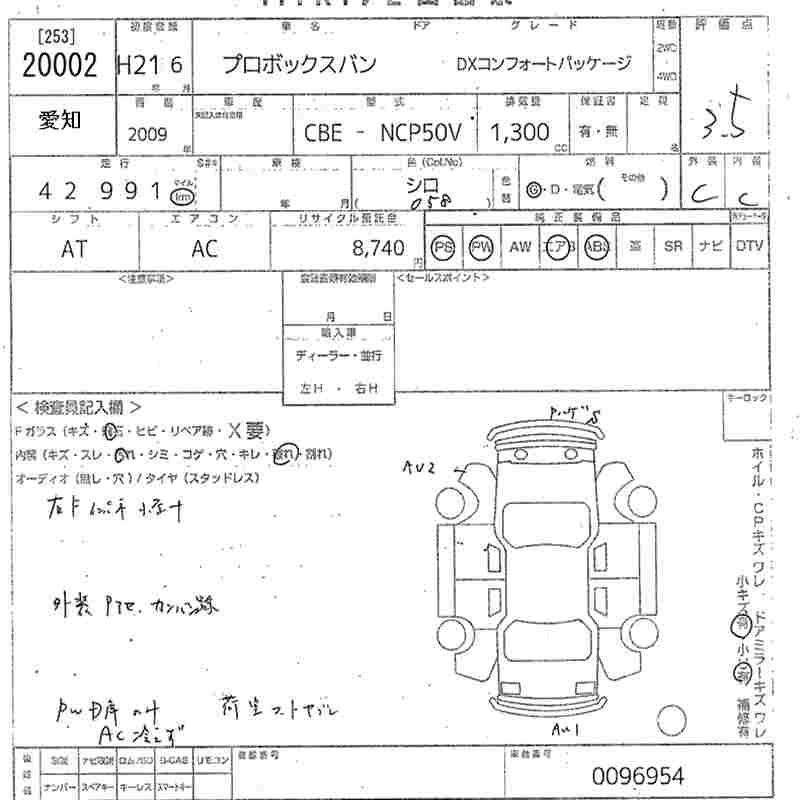 [253]
20002
初度登録
H21 6
年 月
車名
ドア
グレード
プロボックスバン
DXコンフォートパッケージ
2WD
・
4WD
評価点
3.5
愛知
2009
年
型式
CBE - NCP50V
排気量
1,300
CC
保証書
有・無
定員
名
走行
42991
マイル
km
車検
年 月
色(Col.No)
シロ
(058)
色替
燃料
G・D・電気(その他)
外装
C
内装
C
シフト
AT
エアコン
AC
リサイクル預託金
8,740
円
純正装備品
PS
PW
AW
エアB
ABS
革
SR
ナビ
DTV
<注意事項>
月 日
輸入車
ディーラー・並行
左H ・ 右H
<セールスポイント>
<検査員記入欄>
Fガラス(キズ・飛石・ヒビ・リペア跡・X要)
内装(キズ・スレ・汚れ・シミ・コゲ・穴・キレ・破れ・割れ)
オーディオ(無し・穴)/タイヤ(スタッドレス)
外装 Pアセ、カンバン跡
AC冷えず
AU2
AU1
テーロック
ホイル・CPキズ ワレ
ドアミラーキズ ワレ
小キズ有・小凹有
補修有
ナンバー
スペアキー
キーレス
スマートキー
リモコン
B-CAS
車台番号
0096954